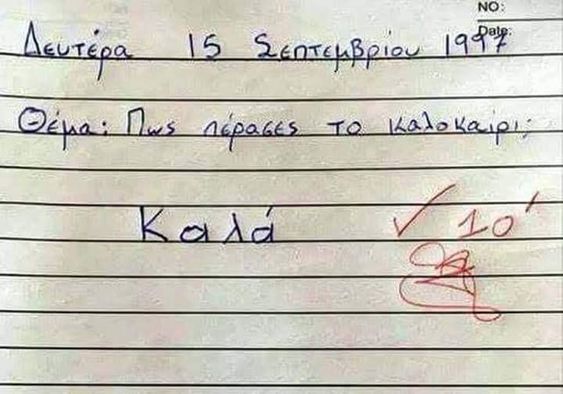 NO:
Date:
Δευτέρα 15 Σεπτεμβρίου 1997
Θέμα: Πως πέρασες το καλοκαίρι;
Καλά ✓ 10'